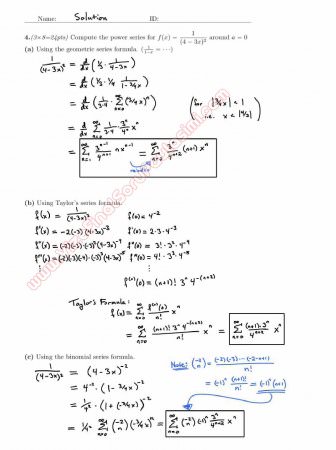 Name: Solution ID:
4.(3×8=24pts) Compute the power series for f(x) = 1/(4 − 3x)² around a = 0
(a) Using the geometric series formula. (1/(1−x) = ⋯)
1/(4-3x)² = d/dx (1/3 · 1/(4-3x))
= d/dx (1/3 · 1/4 · 1/(1-3/4x))
= d/dx (1/3·4 · ∑_{n=0}^∞ (3/4x)^n) (for |3/4x| < 1
= d/dx ∑_{n=0}^∞ 1/3·4 3^n/4^n x^n i.e. x < |4/3|)
= ∑_{n=1}^∞ 3^{n-1}/4^{n+1} n x^{n-1} = ∑_{n=0}^∞ 3^n/4^{n+2} (n+1) x^n
reindex
(b) Using Taylor's series formula.
f(x) = 1/(4-3x)² f(0) = 4^{-2}
f'(x) = -2(-3)(4-3x)^{-3} f'(0) = 2·3·4^{-3}
f''(x) = (-2)(-3)(-3)²(4-3x)^{-4} f''(0) = 3!·3²·4^{-4}
f'''(x) = (-2)(-3)(-4)(-3)³(4-3x)^{-5} f'''(0) = 4!·3³·4^{-5}
⋮ ⋮
f^{(n)}(0) = (n+1)! 3^n 4^{-(n+2)}
Taylor's Formula:
f(x) = ∑_{n=0}^∞ f^{(n)}(0)/n! x^n
= ∑_{n=0}^∞ (n+1)! 3^n 4^{-(n+2)}/n! x^n = ∑_{n=0}^∞ (n+1)·3^n/4^{n+2} x^n
(c) Using the binomial series formula.
1/(4-3x)² = (4-3x)^{-2}
= 4^{-2} · (1-3/4x)^{-2}
= 1/4² · (1+(-3/4x))^{-2}
= 1/4² ∑_{n=0}^∞ (-2 n) (-3/4x)^n = ∑_{n=0}^∞ (-2 n) (-1)^n 3^n/4^{n+2} x^n
Note: (-2 n) = (-2)(-3)⋯(-2-n+1)/n!
= (-1)^n (n+1)!/n! = (-1)^n (n+1)